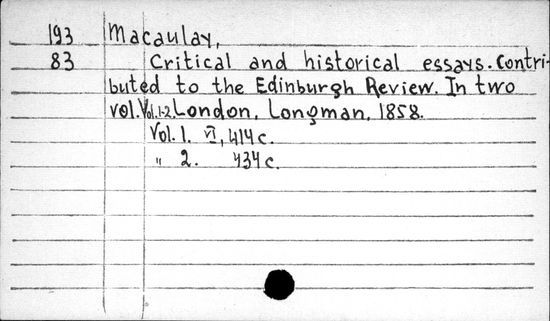 193 Macaulay,
83 Critical and historical essays. Contri-
buted to the Edinburgh Review. In two
vol. Vol.1-2. London, Longman, 1858.
Vol. 1. VI, 414 c.
" 2. 434 c.